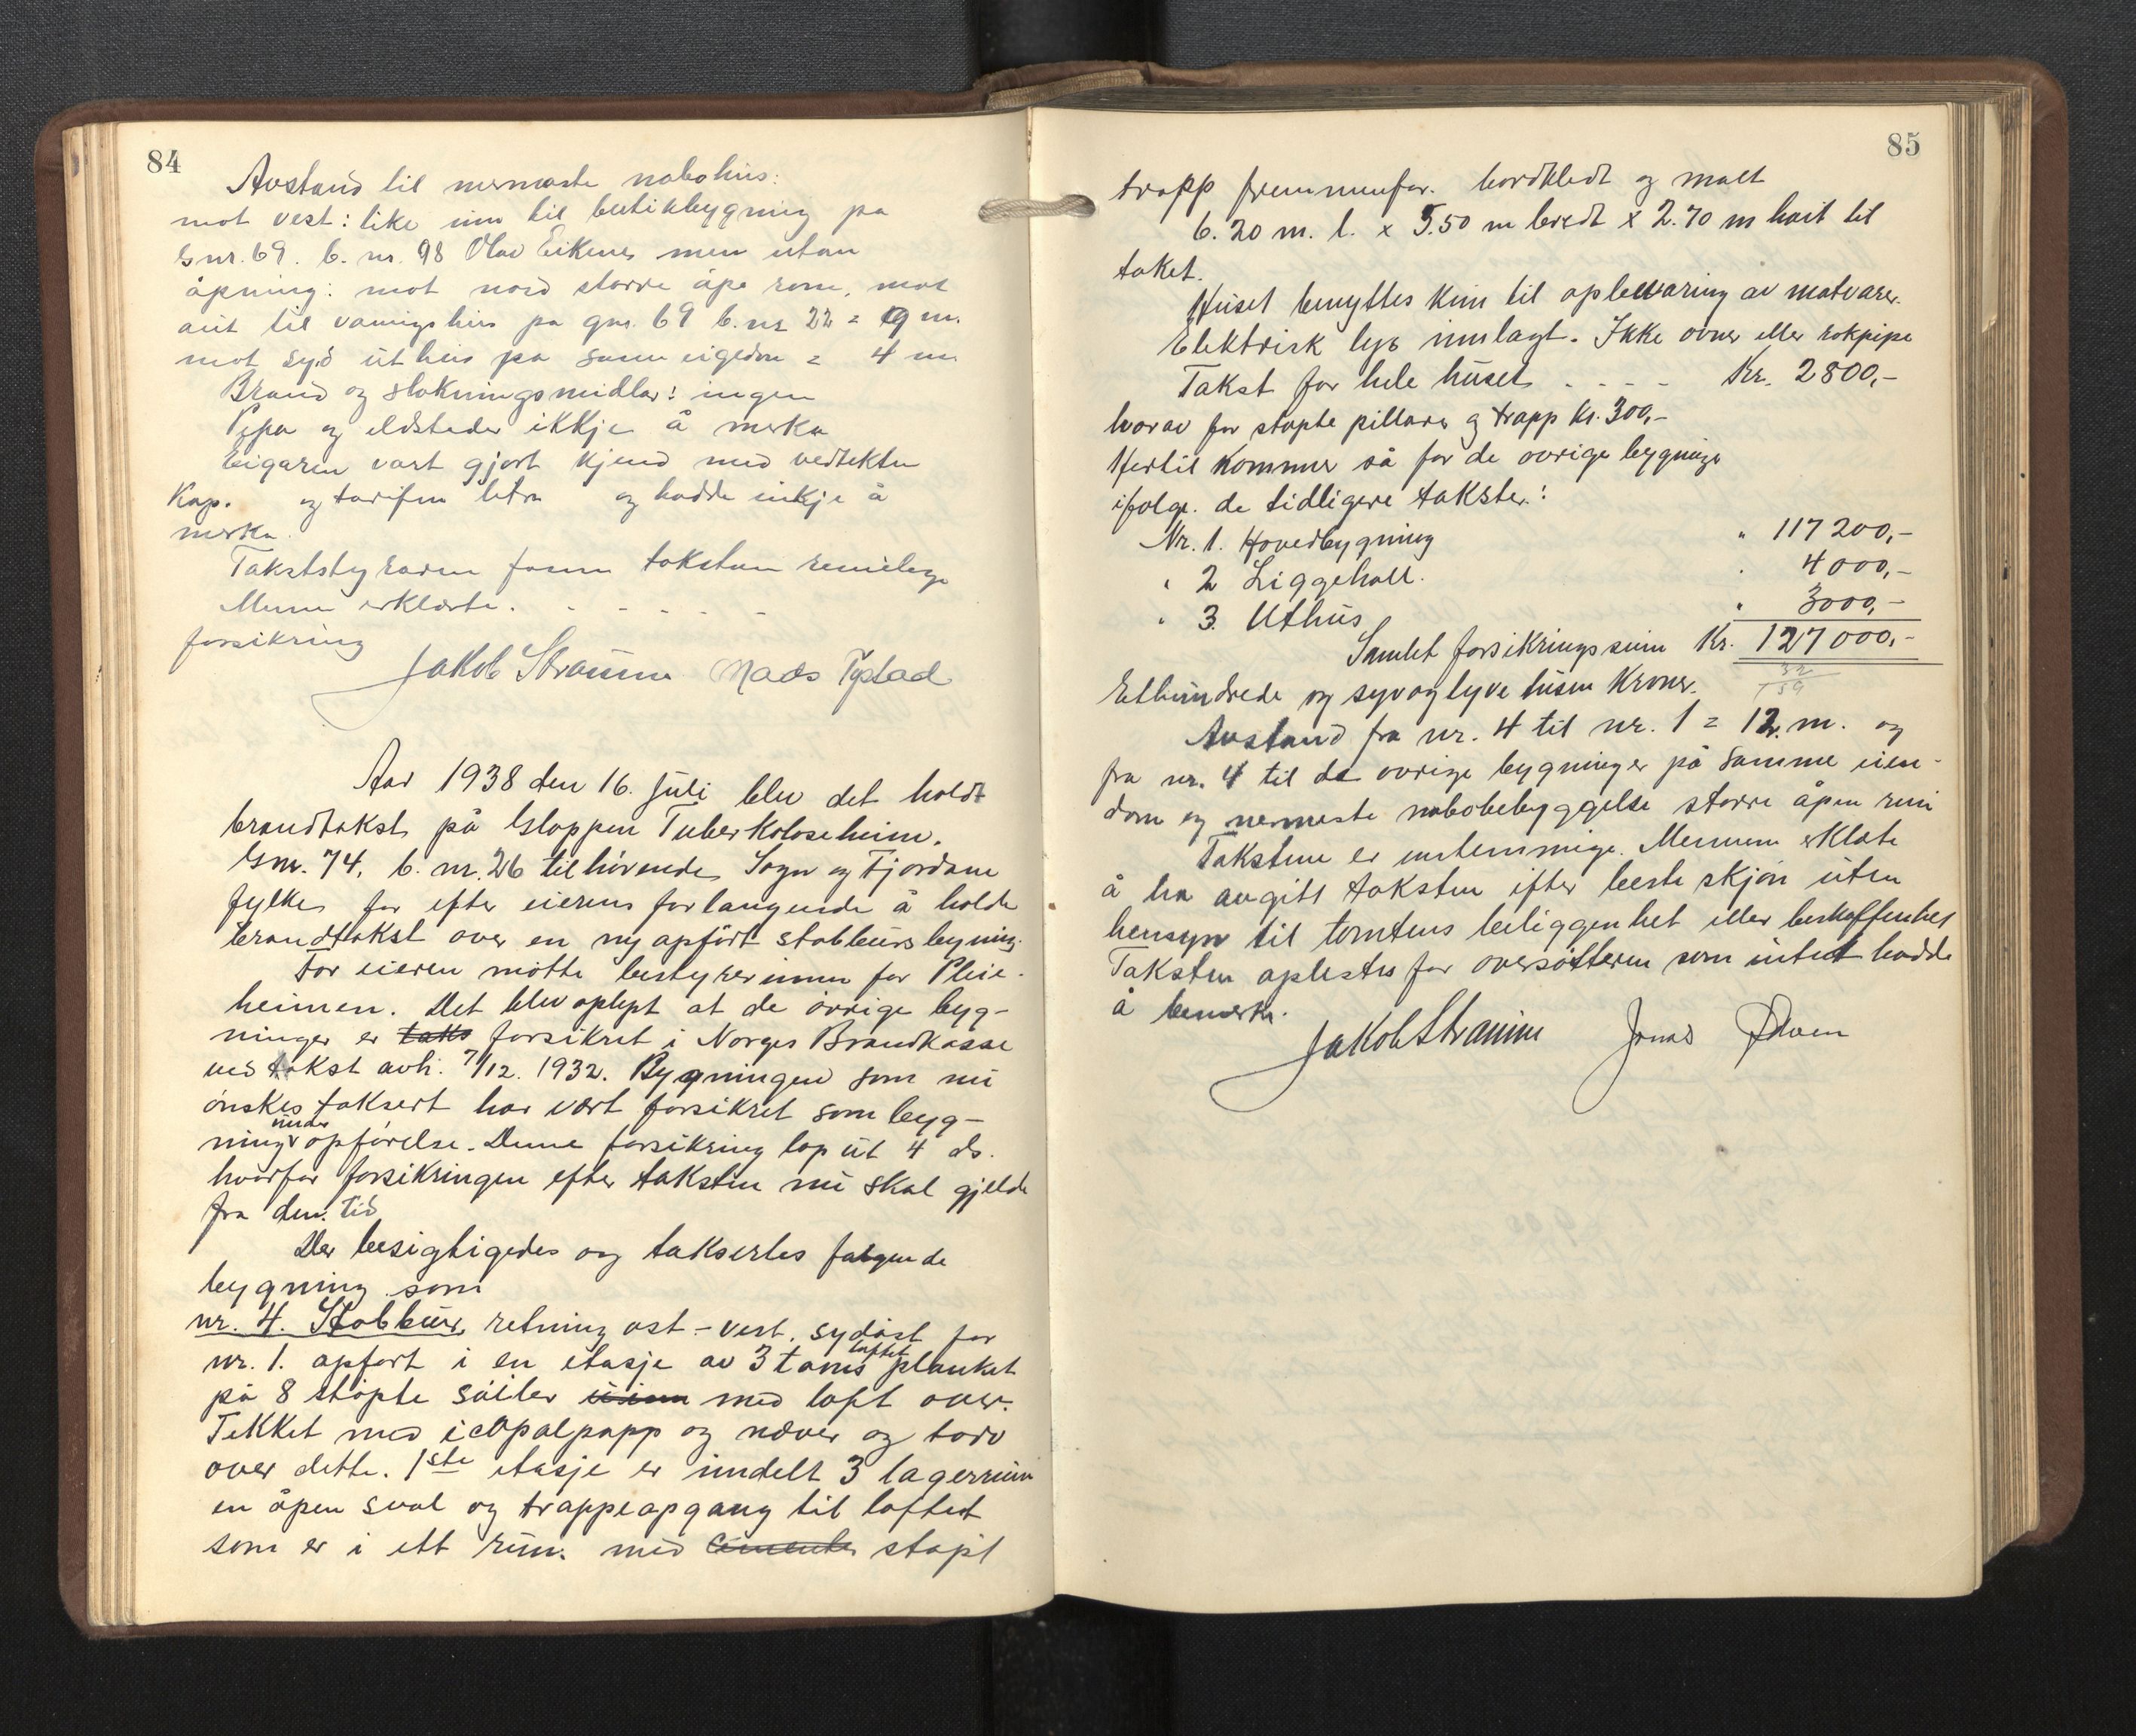 84
Avstand til nermaste nabohus:
mot vest: like inn til butikbygning pa
Gnr. 69. b. nr. 98 Olav Eikenes men utan
åpning: mot nord større åpe rom, mot
aust til vaaningshus pa gnr. 69 b. nr 22 = 9 m.
mot syd uthus pa samme eigedom = 4 m
Brand og sløkningsmidlar: ingen
Pipa og eldsteder ikkje å merka
Eigaren vart gjort kjend med vedtekten
Kap. og tariffen litra og hadde inkje å
merka.
Takststyraren fann taksten rimelege
Menn erklærte. - - - - -
forsikring
Jakob Straume Mads Tystad
Aar 1938 den 16. Juli blev det holdt
brandtakst på Gloppen Tuberkuloseheim.
Gnr. 74, b. nr. 26 tilhørende Sogn og Fjordane
fylke, for efter eierens forlangende å holde
brandtakst over en ny opført stabbursbygning.
For eieren møtte bestyrerinnen for Pleie-
heimen. Det blev oplyst at de øvrige byg-
ninger er taks forsikret i Norges Brandkasse
ved takst avh. 7/12. 1932. Bygningen som nu
ønskes taksert har vært forsikret som byg-
ning under opførelse. Denne forsikring løp ut 4 ds.
hvorfor forsikringen efter taksten nu skal gjelde
fra den tid
Der besigtigedes og taksertes følgende
bygning som
nr. 4. Stabbur, retning øst-vest. sydøst for
nr. 1. opført i en etasje av 3 toms løftet planket
på 8 støpte søiler med loft over.
Tekket med icopalpapp og næver og torv
over dette. 1ste etasje er inndelt 3 lagerrum
en åpen sval og trappeopgang til loftet
som er i ett rum. med cementer støpt
85
trapp fremmenfor. bordkledt og malt
6.20 m. l. x 5.50 m bredt x 2.70 m høit til
taket.
Huset benyttes kun til opbevaring av matvarer.
Elektrisk lys innlagt. Ikke ovner eller rokpipe
Takst for hele huset - - - - Kr. 2800,-
hvorav for støpte pillarer og trapp kr. 300,-
Hertil kommer så for de øvrige bygninger
ifølge de tidligere takster:
Nr. 1. Hovedbygning " 117200,-
" 2 Liggehall. " 4000,-
" 3. Uthus " 3000,-
Samlet forsikringssum Kr. 127000,-
32
159
Ethundrede og syvogtyve tusen Kroner.
Avstand fra nr. 4 til nr. 1 = 12 m. og
fra nr. 4 til de øvrige bygninger på samme eien-
dom og nermeste nabobebyggelse større åpen rum
Takstene er enstemmige. Mennene erklærte
å ha avgitt taksten efter beste skjøn uten
hensyn til tomtens beliggenhet eller beskaffenhet
Taksten oplestes for oversøsteren som intet hadde
å bemerke.
Jakob Straume Jonas